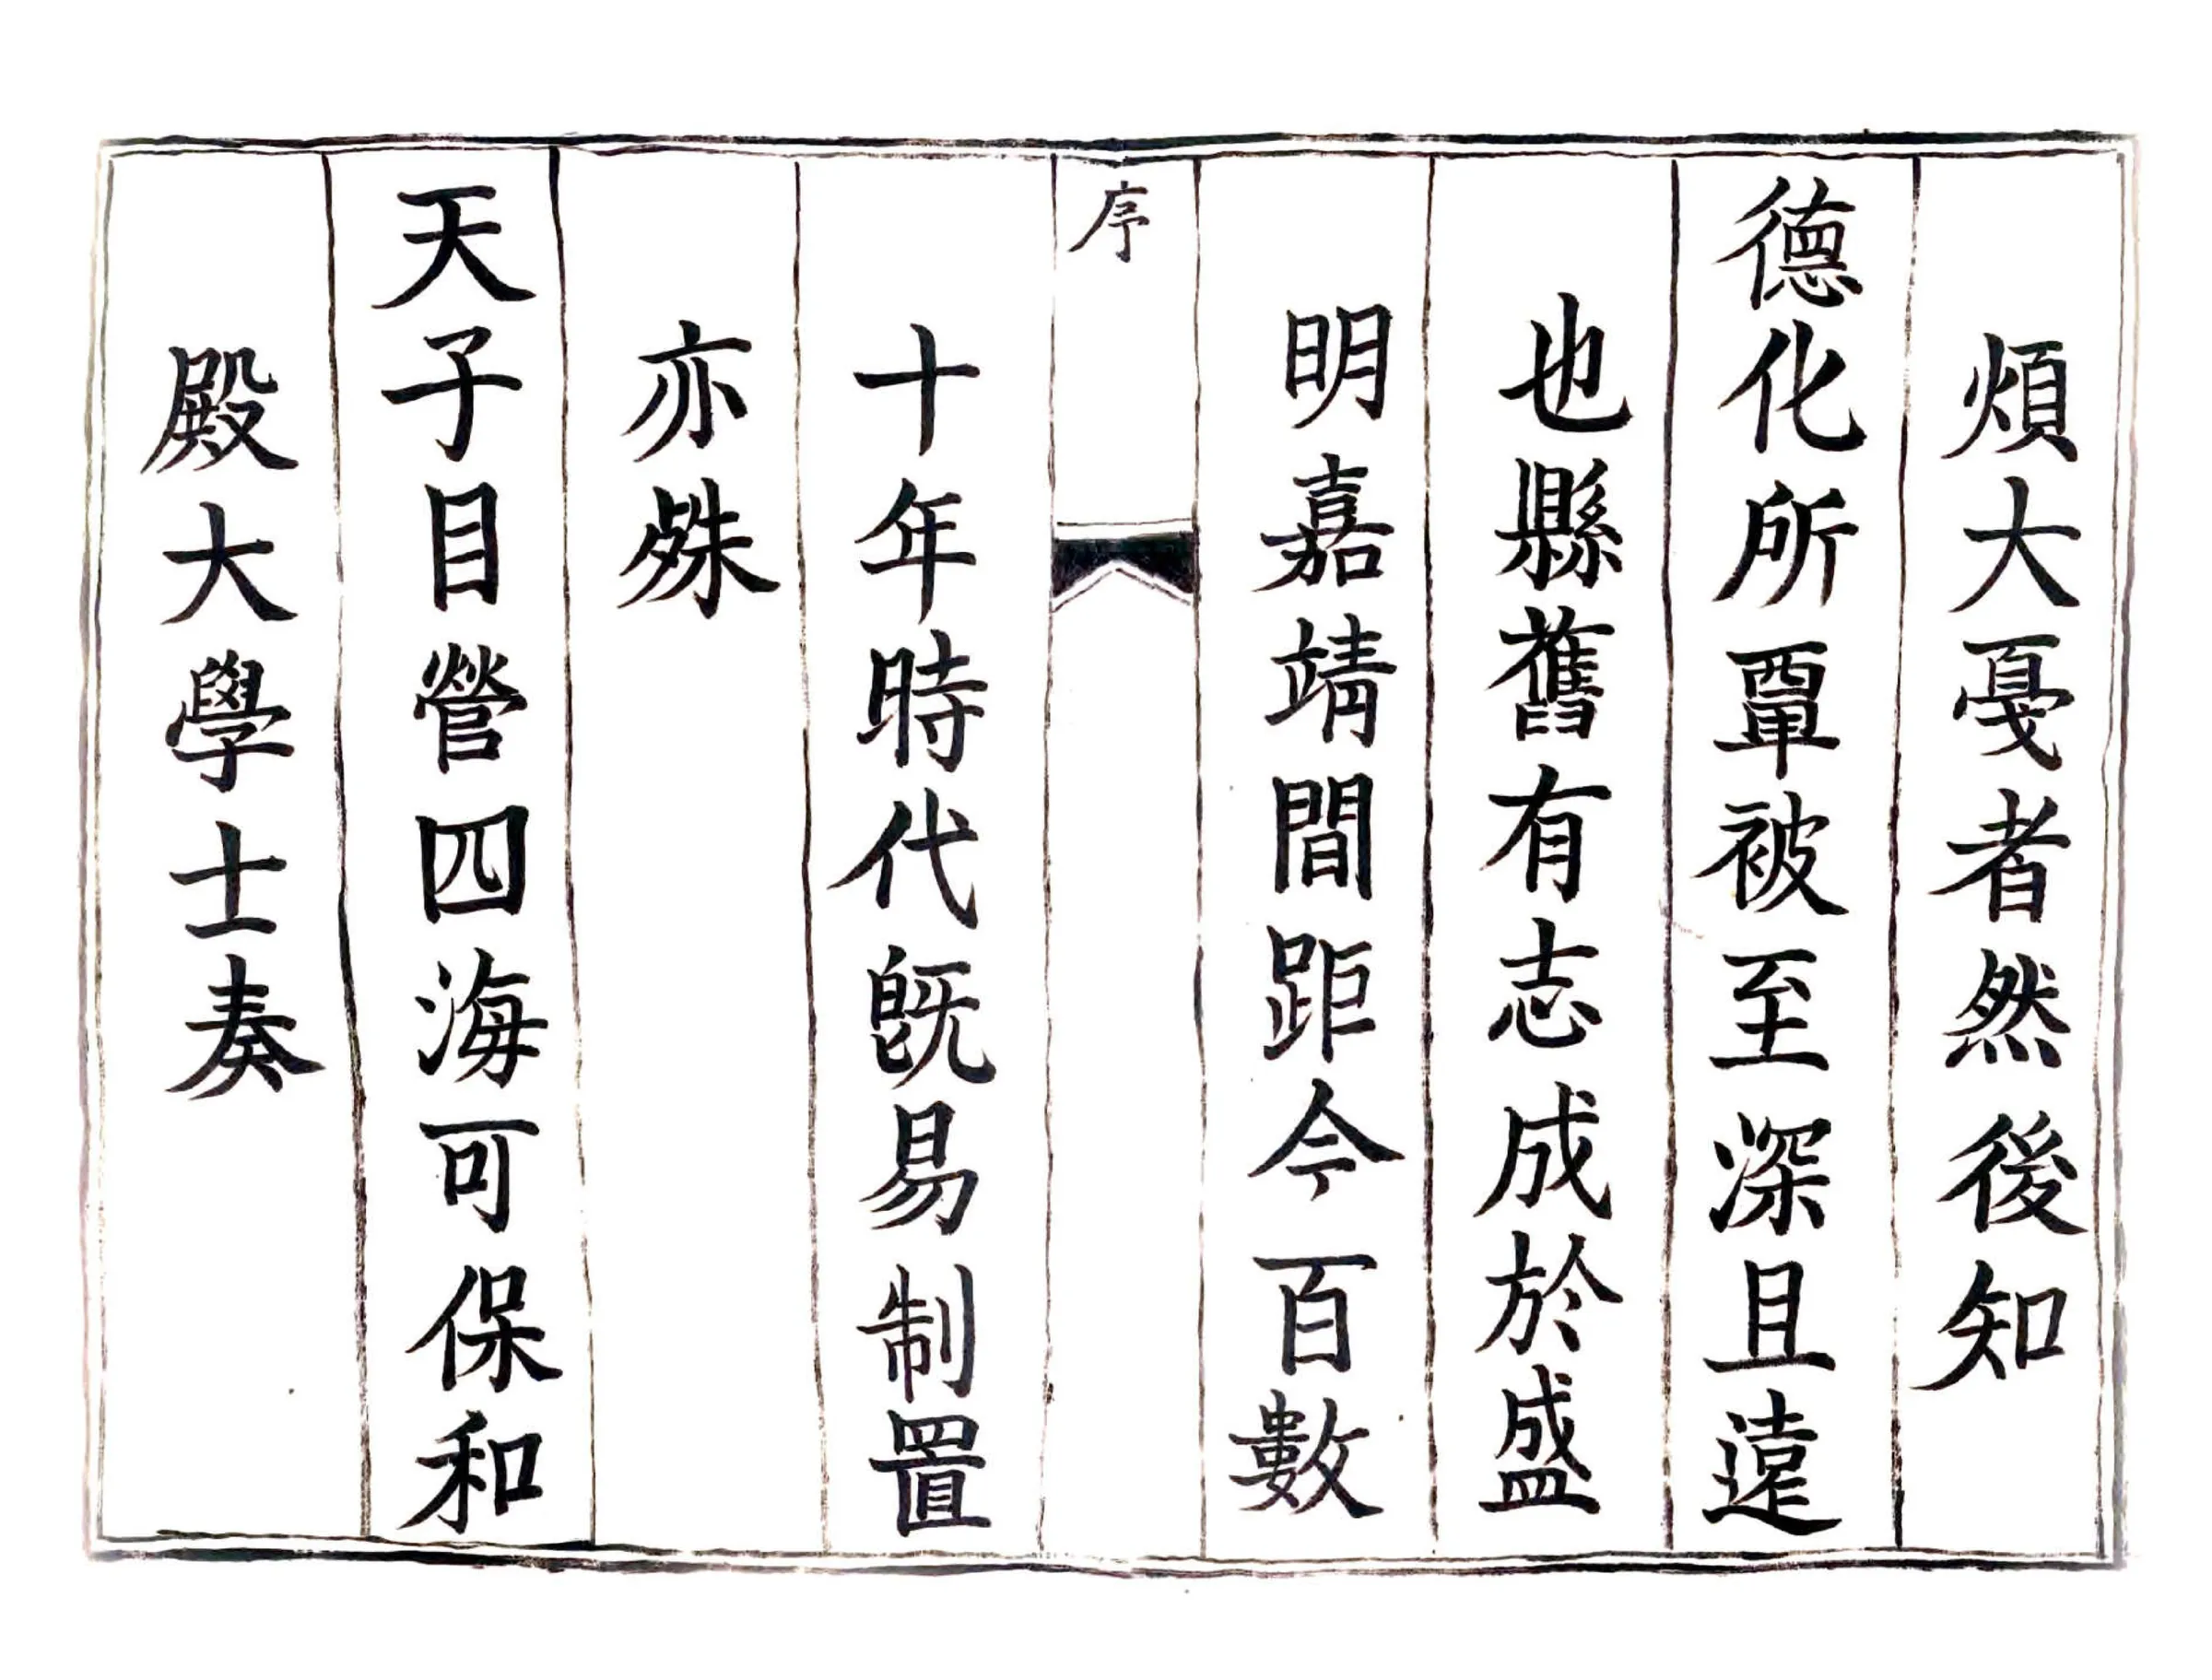 煩大戞者然後知
德化所覃被至深且遠
也縣舊有志成於盛
明嘉靖間距今百數
序
十年時代旣易制置
亦殊
天子目營四海可保和
殿大學士奏